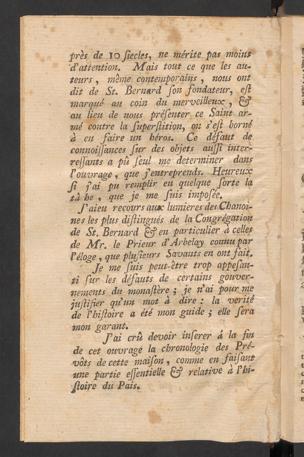 près de 10 siecles, ne mérite pas moins
d'attention. Mais tout ce que les au-
teurs, même contemporains, nous ont
dit de St. Bernard son fondateur, est
marqué au coin du merveilleux, &
au lieu de nous présenter ce Saint ar-
mé contre la superstition, on s'est borné
à en faire un héros. Ce défaut de
connoissances sur des objets aussi inter-
ressants a pû seul me determiner dans
l'ouvrage, que j'entreprends. Heureux
si j'ai pu remplir en quelque sorte la
tâche, que je me suis imposée.
J'ai eu recours aux lumieres des Chanoi-
nes les plus distingués de la Congrégation
de St. Bernard & en particulier à celles
de Mr. le Prieur d'Arbelay connu par
l'éloge, que plusieurs Savants en ont fait.
Je me suis peut-être trop appesan-
ti sur les défauts de certains gouver-
nements du monastère; je n'ai pour me
justifier qu'un mot à dire: la verité
de l'histoire a été mon guide; elle sera
mon garant.
J'ai crû devoir inserer á la fin
de cet ouvrage la chronologie des Pré-
vôts de cette maison, comme en faisant
une partie essentielle & relative à l'hi-
stoire du Pais.